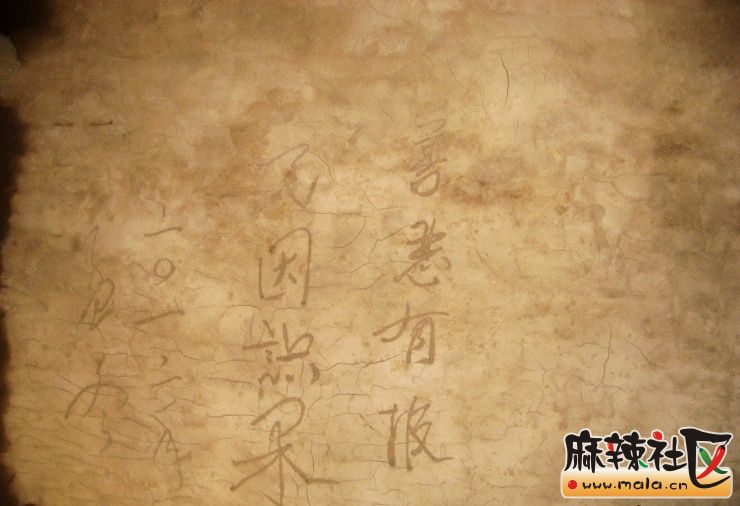 善恶有报
了因识果
二〇一二
麻辣社区
www.mala.cn